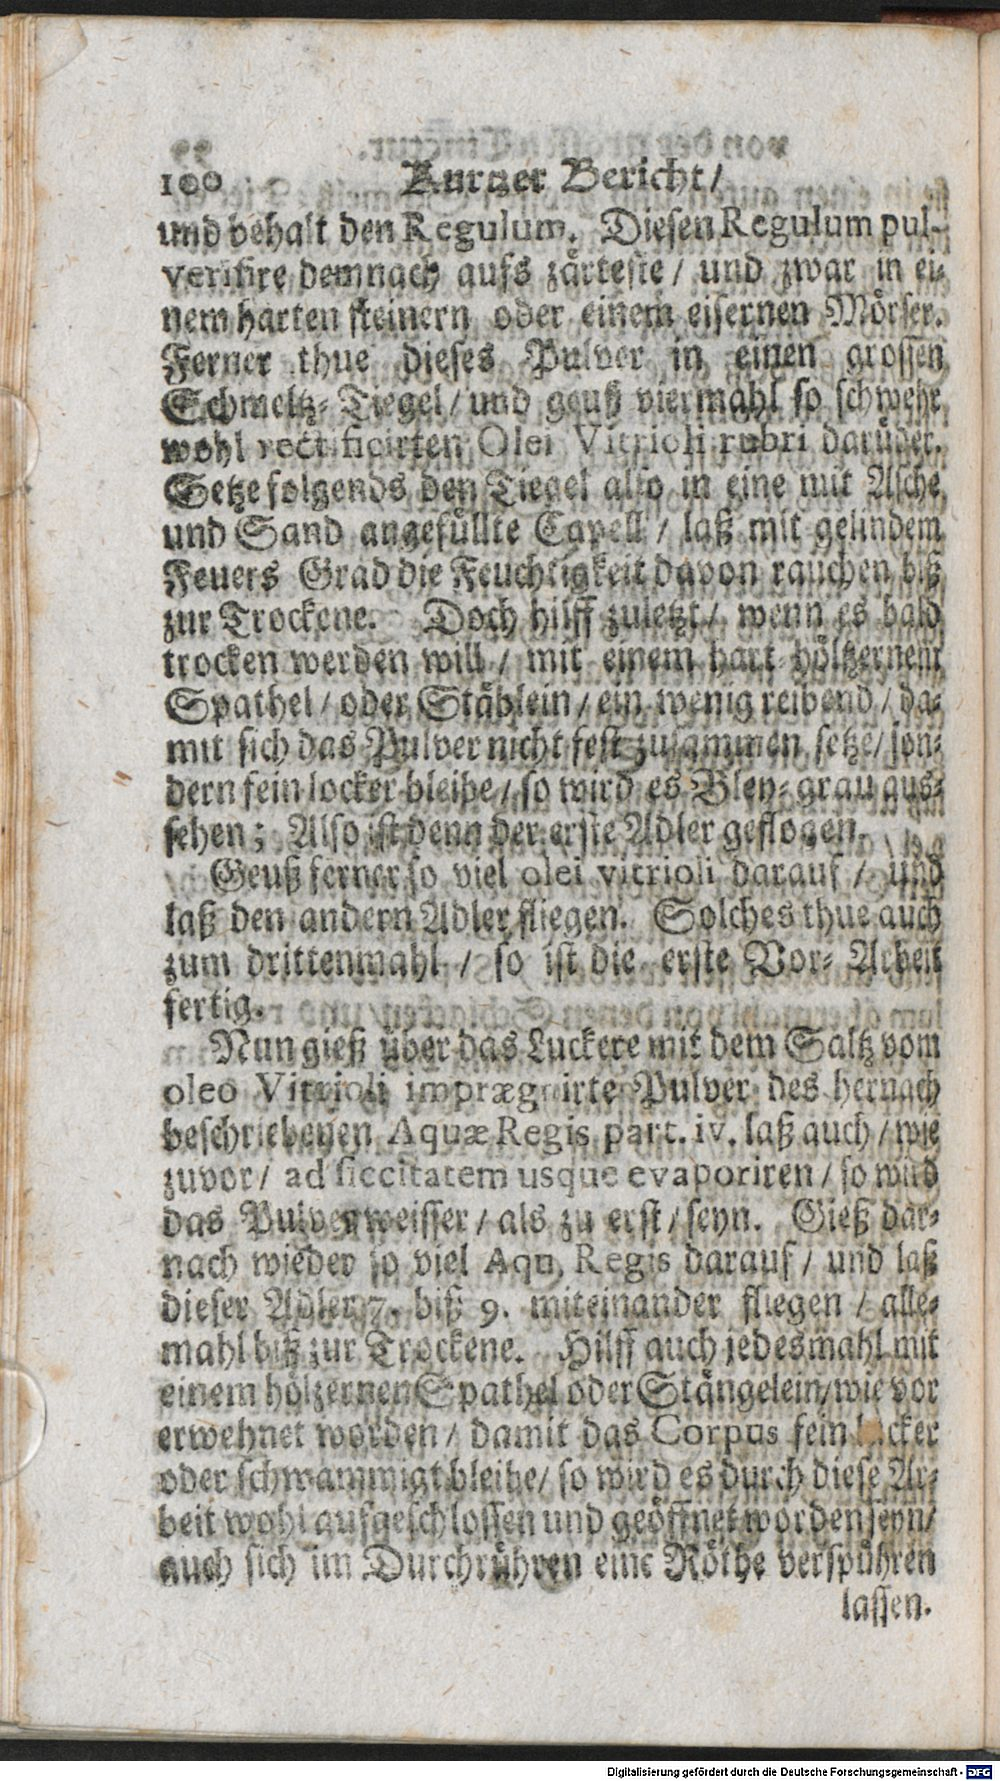 100 Kurtzer Bericht/
und behalt den Regulum. Diesen Regulum pul-
verisire demnach aufs zärteste / und zwar in ei-
nem harten steinern oder einem eisernen Mörser.
Ferner thue dieses Pulver in einen grossen
Schmeltz-Tiegel / und geuß viermahl so schwehr
wohl rectificirten Olei Vitrioli rubri darüber.
Setze folgends den Tiegel also in eine mit Asche
und Sand angefüllte Capell / laß mit gelindem
Feuers Grad die Feuchtigkeit davon rauchen biß
zur Trockene. Doch hilff zuletzt / wenn es bald
trocken werden will / mit einem hart-höltzernem
Spathel / oder Stäblein / ein wenig reibend / da-
mit sich das Pulver nicht fest zusammen setze / son-
dern fein locker bleibe / so wird es Bley-grau aus-
sehen; Also ist denn der erste Adler geflogen.
Geuß ferner so viel olei vitrioli darauf / und
laß den andern Adler fliegen. Solches thue auch
zum drittenmahl / so ist die erste Vor-Arbeit
fertig.
Nun gieß über das Luckere mit dem Saltz vom
oleo Vitrioli imprægnirte Pulver des hernach
beschriebenen Aquæ Regis part. iv. laß auch / wie
zuvor / ad siccitatem usque evaporiren / so wird
das Pulver weisser / als zu erst / seyn. Gieß dar-
nach wieder so viel Aqu. Regis darauf / und laß
dieser Adler 7. biß 9. miteinander fliegen / alle-
mahl biß zur Trockene. Hilff auch jedesmahl mit
einem hölzernen Spathel oder Stängelein / wie vor
erwehnet worden / damit das Corpus fein locker
oder schwammigt bleibe / so wird es durch diese Ar-
beit wohl aufgeschlossen und geöffnet worden seyn /
auch sich im Durchrühren eine Röthe verspühren
lassen.
Digitalisierung gefördert durch die Deutsche Forschungsgemeinschaft - DFG